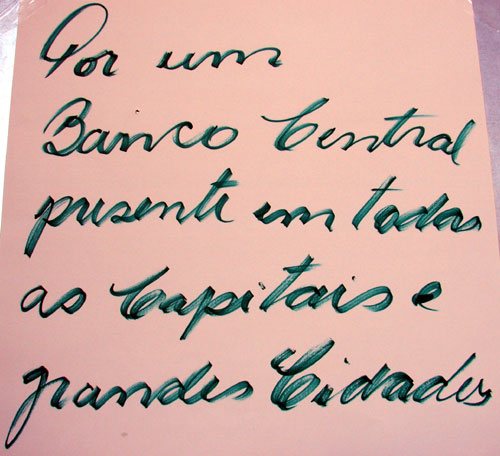 Por um
Banco Central
presente em todas
as Capitais e
grandes Cidades